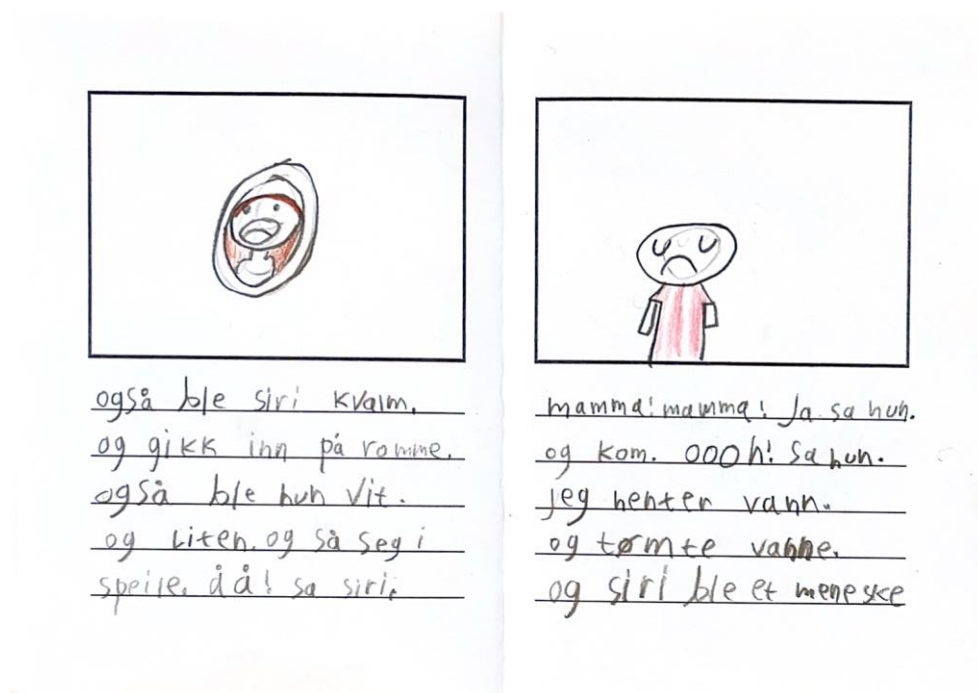 også ble siri kvalm.
og gikk inn på romme.
også ble hun Vit.
og Liten. og så seg i
speile. då! sa siri.
mamma! mamma! Ja. sa hun.
og kom. OOOh! Sa hun.
jeg henter vann.
og tømte vanne.
og siri ble et meneske